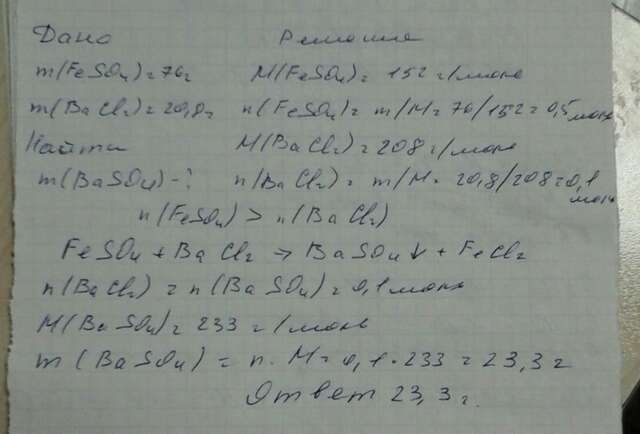 Дано Решение
m(FeSO4)=76г M(FeSO4)=152 г/моль
m(BaCl2)=20,8г n(FeSO4)=m/M=76/152=0,5 моль
Найти M(BaCl2)=208 г/моль
m(BaSO4)-? n(BaCl2)=m/M=20,8/208=0,1 моль
n(FeSO4)>n(BaCl2)
FeSO4+BaCl2→BaSO4↓+FeCl2
n(BaCl2)=n(BaSO4)=0,1моль
M(BaSO4)=233 г/моль
m(BaSO4)=n·M=0,1·233=23,3г
Ответ 23,3г.